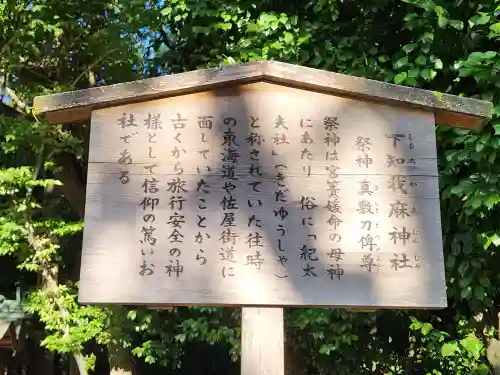 下知我麻神社
しもちかまじんじゃ
祭神 真敷刀俾尊
祭神は宮簀媛命の母神
にあたり 俗に「紀太
夫社」(きだゆうしゃ)
と称されていた往時
の東海道や佐屋街道に
面していたことから
古くから旅行安全の神
様として信仰の篤いお
社である